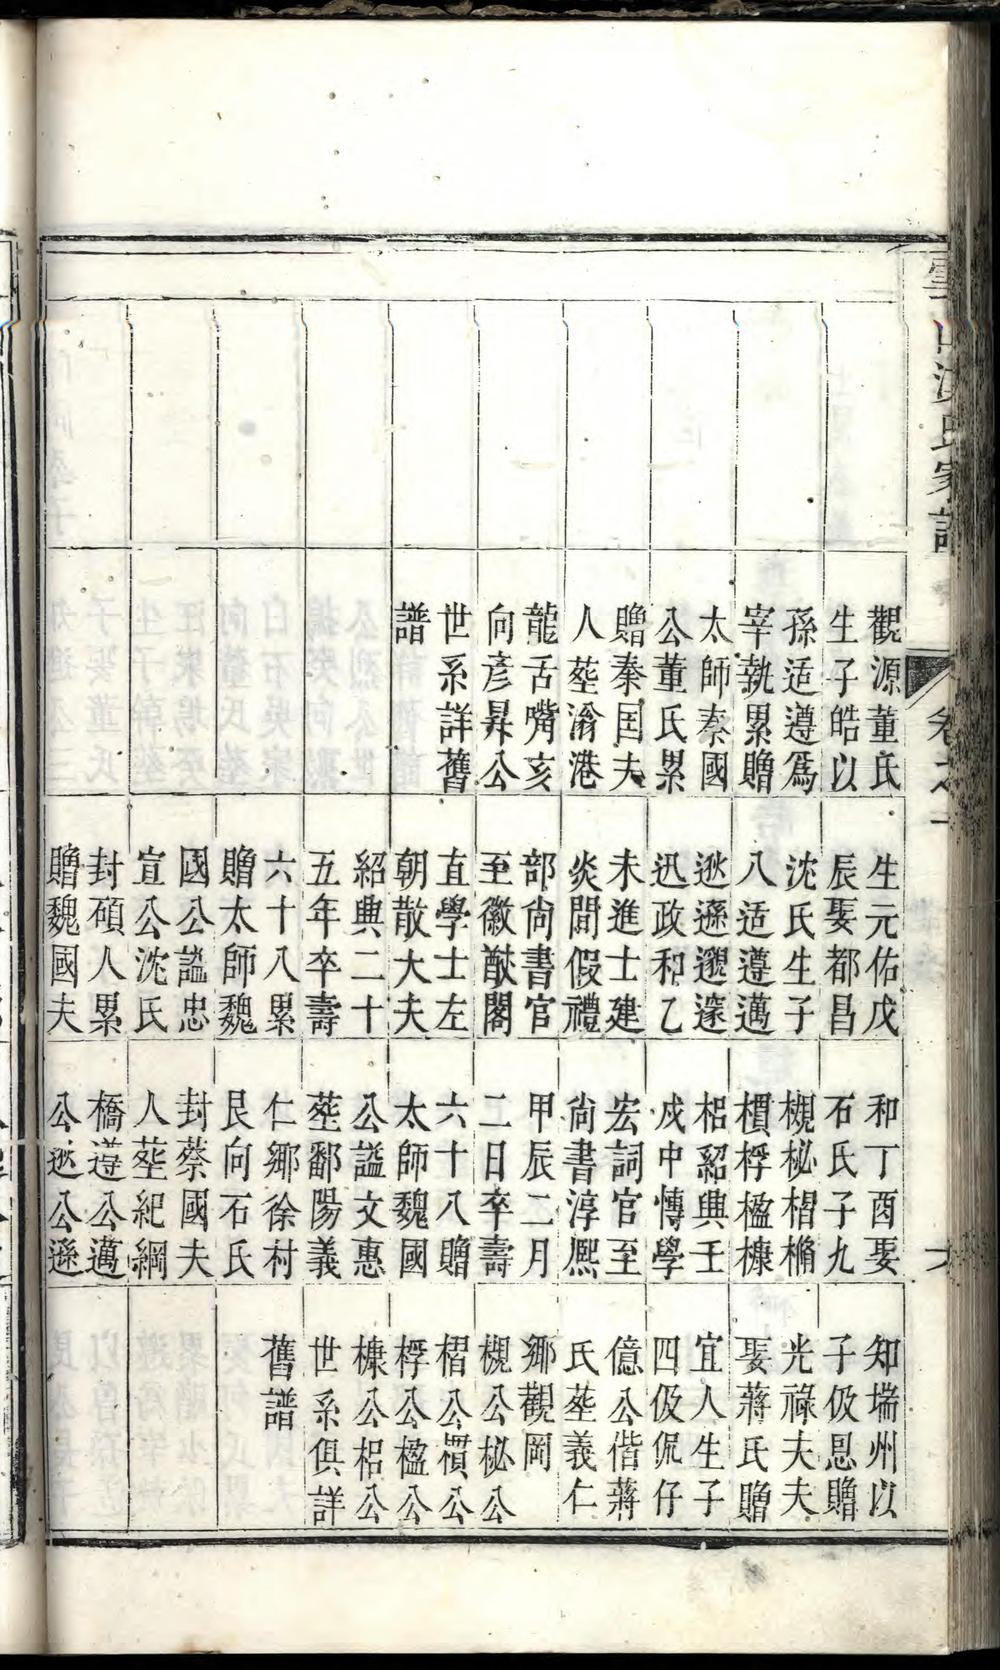 觀源董氏
生子皓以
孫适遵爲
宰執累贈
太師秦國
公董氏累
贈秦国夫
人塟滃港
龍舌嘴亥
向彦昇公
世系詳舊
譜
生元佑戊
辰娶都昌
沈氏生子
八适遵邁
逖遜邈邃
迅政和乙
未進士建
炎間假禮
部尚書官
至徽猷閣
直學士左
朝散大夫
紹興二十
五年卒壽
六十八累
贈太師魏
國公謚忠
宣公沈氏
封碩人累
贈魏國夫
和丁酉娶
石氏子九
槻柲榗樇
槚桴楹槺
梠紹興壬
戍中慱學
宏詞官至
尚書淳熈
甲辰二月
二日卒壽
六十八贈
太師魏國
公謚文惠
塟鄱陽義
仁鄉徐村
艮向石氏
封蔡國夫
人塟紀綱
橋遵公邁
公逖公遜
知瑞州以
子伋恩贈
光祿大夫
娶蔣氏贈
宜人生子
四伋侃仔
億公偕蔣
氏塟義仁
鄉觀岡
槻公柲公
榗公槚公
桴公楹公
槺公梠公
世系俱詳
舊譜
氏家譜
卷之一
六